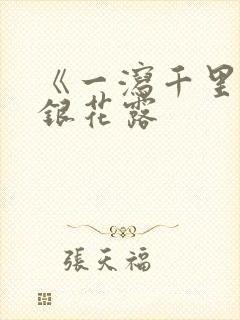 《一瀉千里
銀花露
張天福